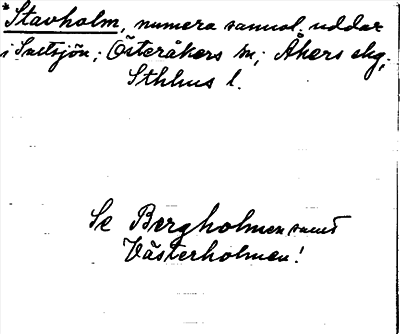 *Stavholm, numera samt uddar
i Saltsjön; Österåkers sn; Åkers skg;
Sthlms l.
Se Bergholmen samt
Västerholmen!